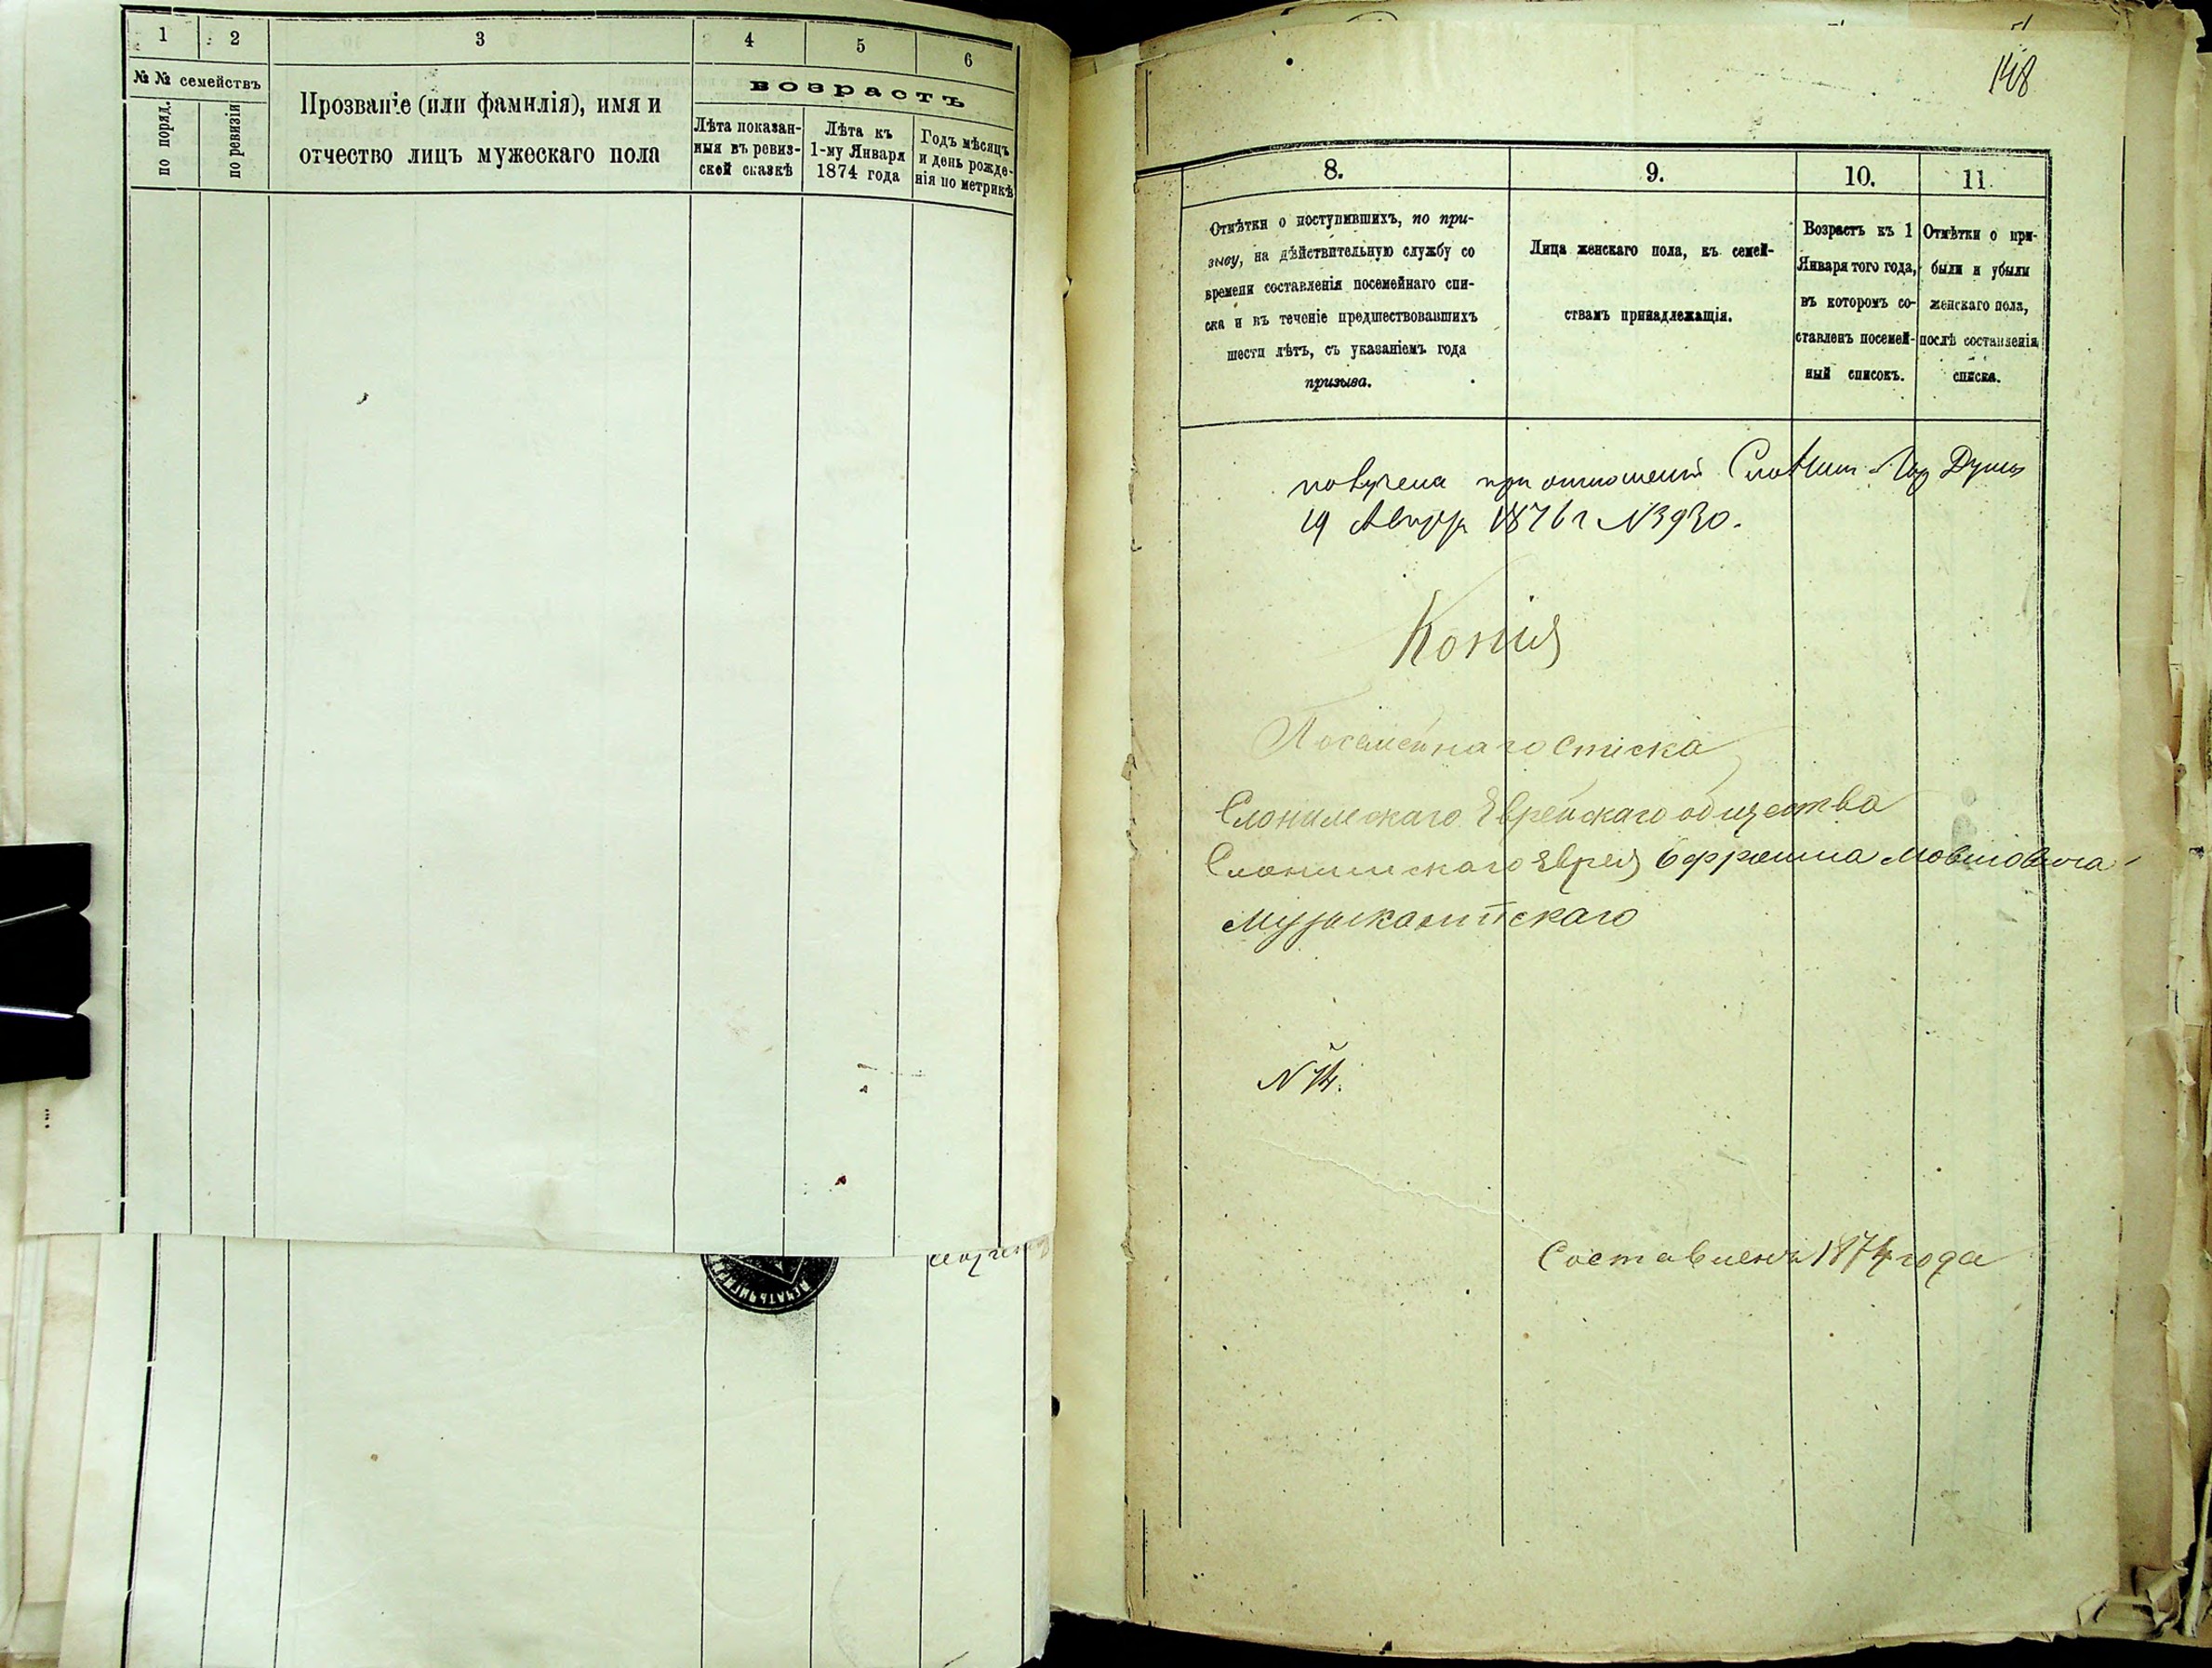 1 2 3 4 5 6
№№ семействъ
по поряд.
по ревизіи
Прозваніе (или фамилія), имя и
отчество лицъ мужескаго пола
возрастъ
Лѣта показан-
ныя въ ревиз-
ской сказкѣ
Лѣта къ
1-му Января
1874 года
Годъ мѣсяцъ
и день рожде-
нія по метрикѣ
148
8. 9. 10. 11
Отмѣтки о поступившихъ, по при-
зыву, на дѣйствительную службу со
времени составленія посемейнаго спи-
ска и въ теченіе предшествовавшихъ
шести лѣтъ, съ указаніемъ года
призыва.
Лица женскаго пола, къ семей-
ствамъ принадлежащія.
Возрастъ къ 1
Января того года,
въ которомъ со-
ставленъ посемей-
ный списокъ.
Отмѣтки о при-
были и убыли
женскаго пола,
послѣ составленія
списка.
получена при отношеніи Слоним Гор Думы
19 1876 г N3930.
Копія
Посемейнаго списка
Слонимскаго Еврейскаго общества
Слонимскаго Еврея Ефроима Мовшовича
Музыкантскаго
N 74.
Составленъ 1874 года